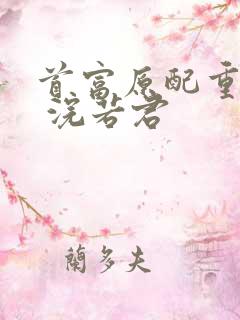 首富原配重
浣若君
蘭多夫